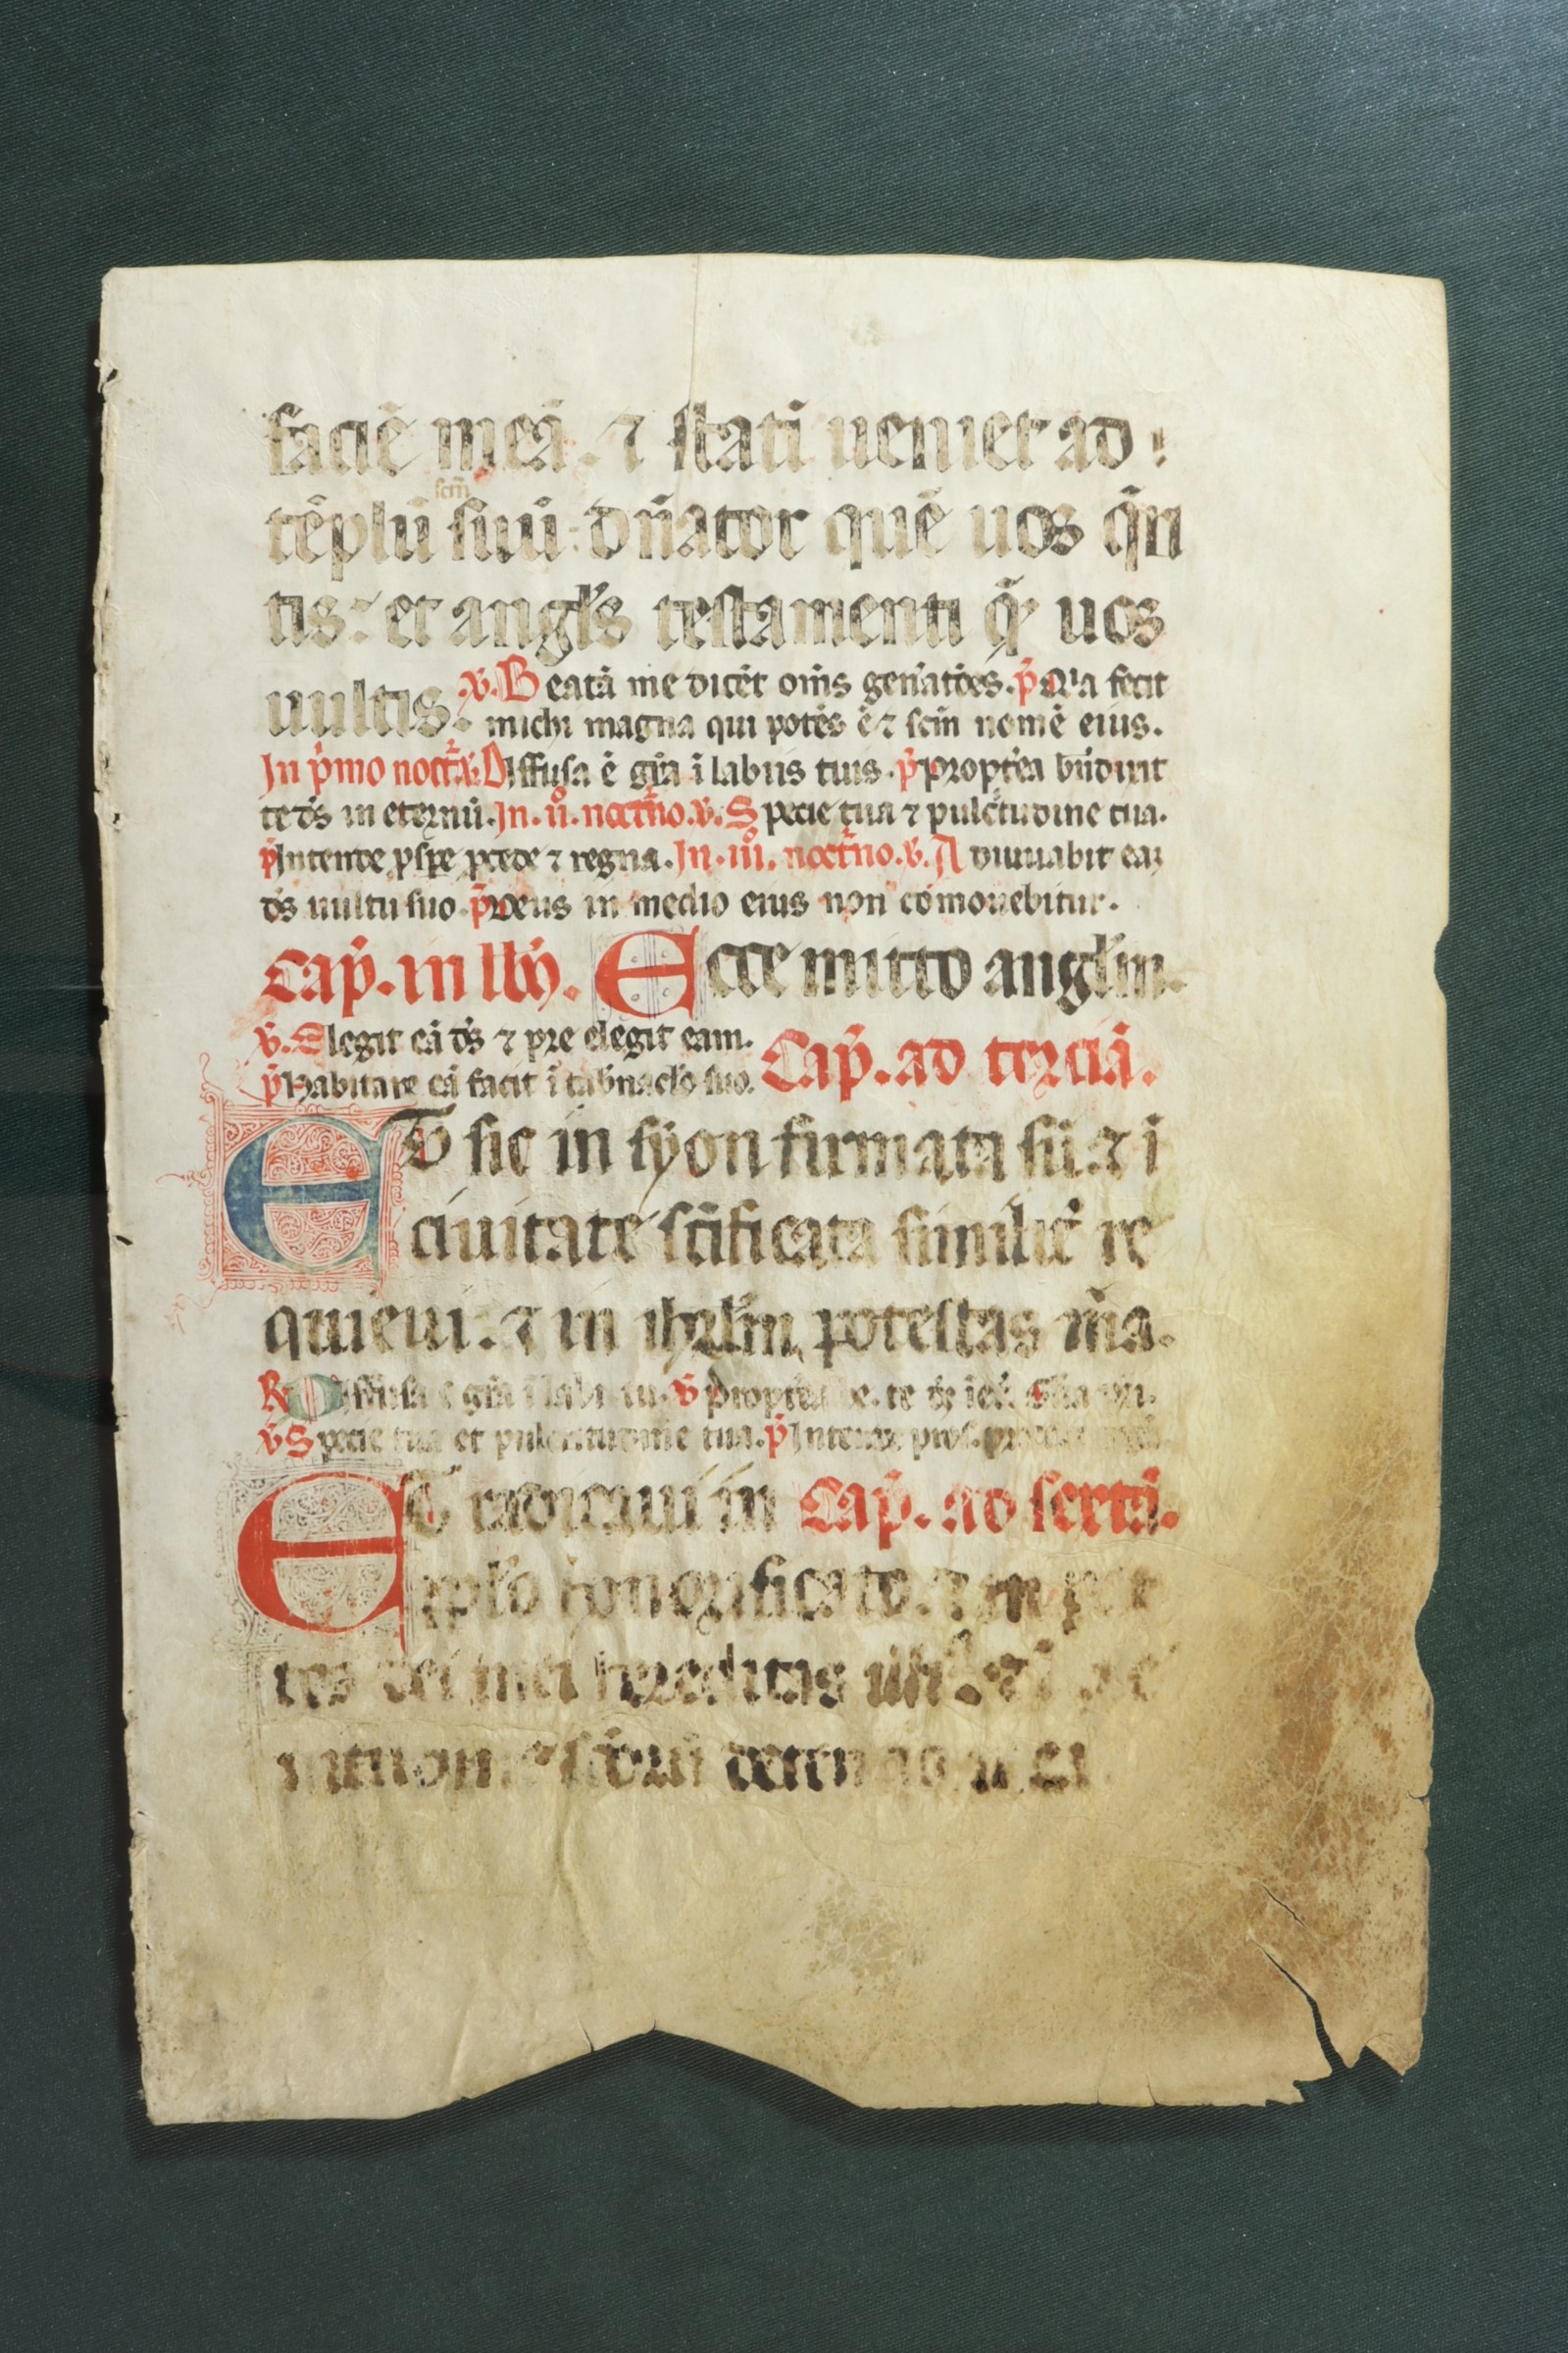 faciē meā. ⁊ stati ueniet ad
scm̄
tēplū suū: dn̄ator quē uos q̄ri
tis: et angl's testamenti q̄ uos
uultis. v. Beatā me dicēt om̄s gen̄atōes. p̄ Q'a fecit
michi magna qui potēs ē ⁊ scm̄ nomē eius.
In p'mo noct̄. v. Diffusa ē gr̄a ī labiis tuis. p̄ propt'ea bn̄dixit
te d's in eternū. In. ii°. noct̄no. v. Specie tua ⁊ pulc̄tudine tua.
p̄ Intende pspe pcede ⁊ regna. In. iii°. noct̄no. v. Adiuuabit eaꝫ
d's uultu suo. p̄ deus in medio eius non cōmouebitur.
Cap̄. in llb'. Ecce mitto angl'm.
v. Elegit eā d's ⁊ pre elegit eam.
p̄ Habitare eā facit ī tab'naclo suo. Cap̄. ad terciā.
ET sic in syon firmata sū. ⁊ ī
ciuitate scīficata similit' re
quieui: ⁊ in ihrl'm potestas m̄a.
R Diffusa ē gr̄a ī labi. tu. v propt'ea be. te
v Specie tua et pulcritudine tua. p̄ Intende pros.
ET radicaui in Cap̄. ad sextā.
pplō honorificato. ⁊ in par
tes dei mei hereditas illi'. ⁊ ī